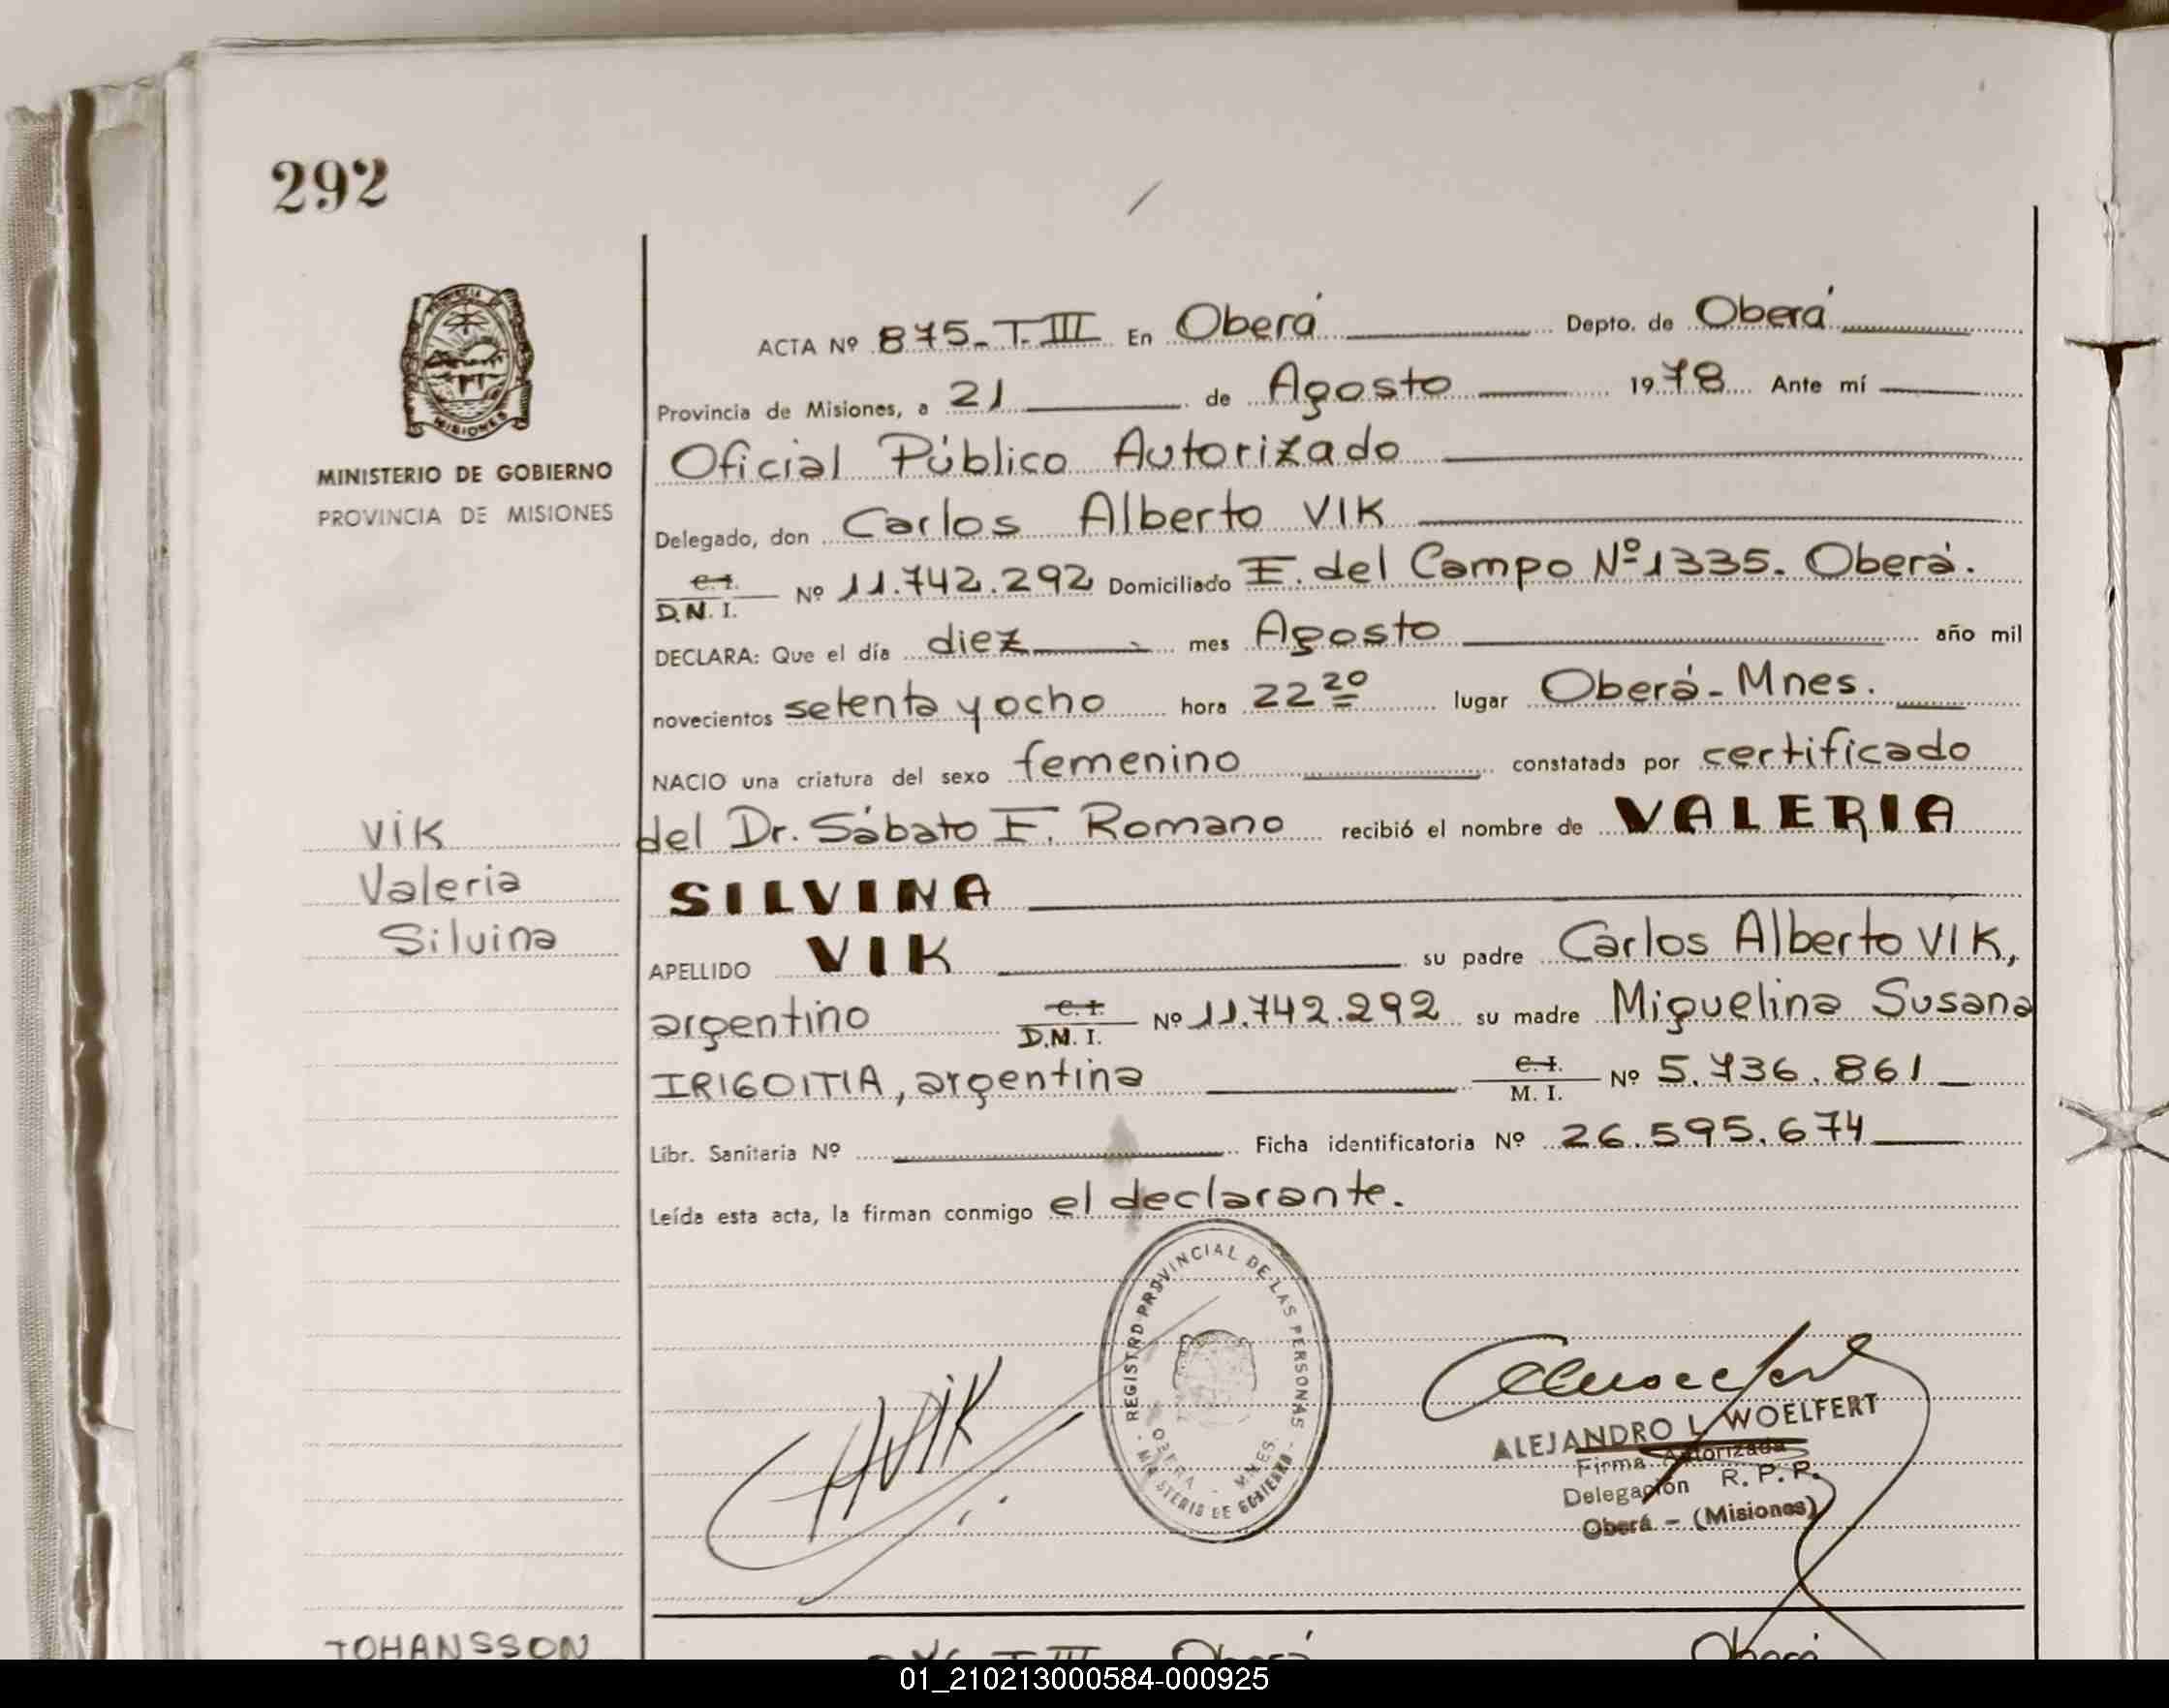 292
PROVINCIA DE
MISIONES
MINISTERIO DE GOBIERNO
PROVINCIA DE MISIONES
ACTA Nº 875-T.III En Oberá Depto. de Oberá
Provincia de Misiones, a 21 de Agosto 1978 Ante mí
Oficial Público Autorizado
Delegado, don Carlos Alberto VIK
C.I.
D.N.I. Nº 11.742.292 Domiciliado E. del Campo Nº 1335. Oberá.
DECLARA: Que el día diez mes Agosto año mil
novecientos setenta y ocho hora 22 20 lugar Oberá - Mnes.
NACIO una criatura del sexo femenino constatada por certificado
del Dr. Sábato F. Romano recibió el nombre de VALERIA
SILVINA
APELLIDO VIK su padre Carlos Alberto VIK,
argentino C.I. D.M.I. Nº 11.742.292 su madre Miguelina Susana
IRIGOITIA, argentina C.I. M.I. Nº 5.736.861
Libr. Sanitaria Nº Ficha identificatoria Nº 26.595.674
Leída esta acta, la firman conmigo el declarante.
VIK
Valeria
Silvina
REGISTRO PROVINCIAL DE LAS PERSONAS
OBERA - MNES.
- MINISTERIO DE GOBIERNO -
ALEJANDRO L. WOELFERT
Firma Autorizada
Delegación R. P. P.
Oberá - (Misiones)
JOHANSSON
Oberá Oberá
01_210213000584-000925